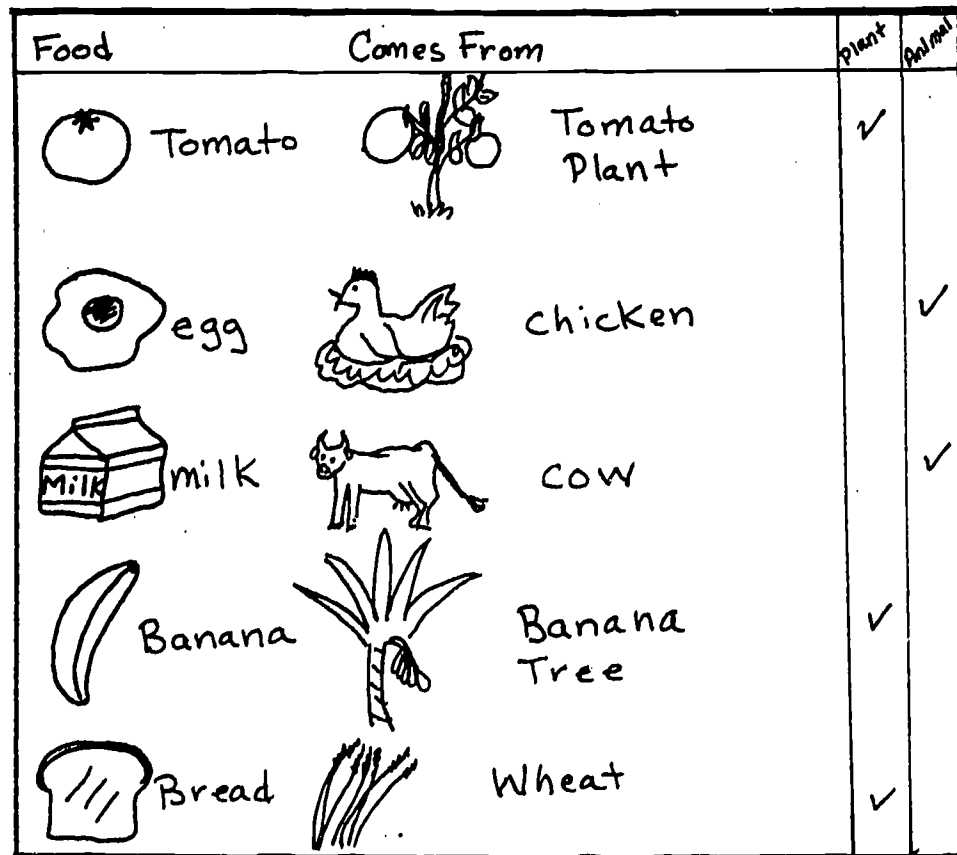 Food Comes From Plant Animal
Tomato Tomato
Plant ✓
egg chicken ✓
Milk milk cow ✓
Banana Banana
Tree ✓
Bread Wheat ✓